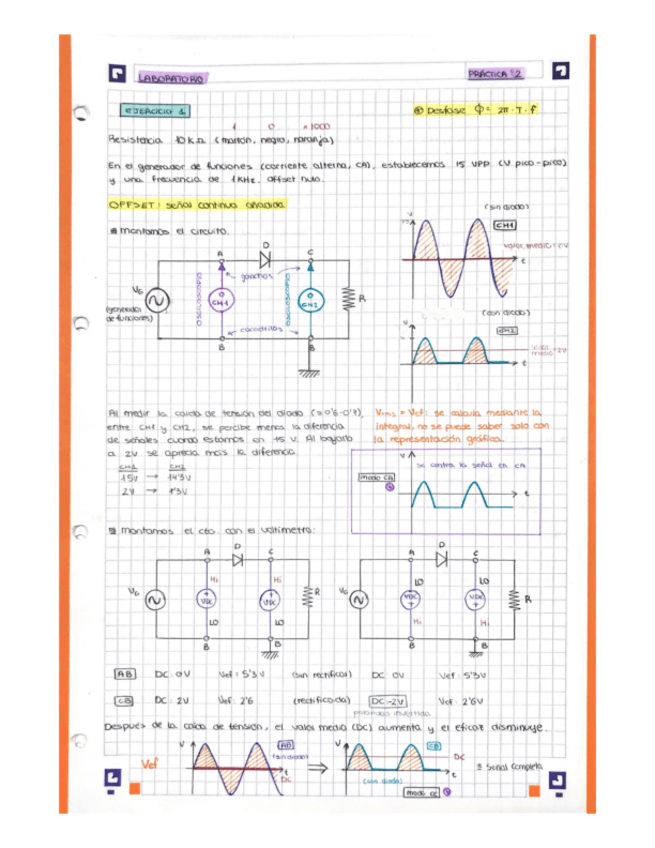 LABORATORIO
PRÁCTICA 2
EJERCICIO 1
Desfase Φ = 2π · T · f
1 0 x1000
Resistencia 10 kΩ (marrón, negro, naranja)
En el generador de funciones (corriente alterna, CA), establecemos 15 VPP (V pico-pico)
y una frecuencia de 1 KHz. Offset nulo.
OFFSET: señal continua añadida
montamos el circuito.
(sin diodo)
V
CH1
valor medio = 0V
t
A
D
C
ganchos
VG
(generador
de funciones)
OSCILOSCOPIO
CH1
OSCILOSCOPIO
CH2
R
cocodrilos
B
B
(con diodo)
V
CH2
valor
medio
t
Al medir la caída de tensión del diodo (≈ 0'6-0'7),
entre CH1 y CH2, se percibe menos la diferencia
de señales cuando estamos en 15 V. Al bajarlo
a 2V se aprecia más la diferencia.
CH1 CH2
15V → 14'3V
2V → 1'3V
VRMS = Vef: se calcula mediante la
integral, no se puede saber solo con
la representación gráfica.
V
se centra la señal en CA
modo CA
t
montamos el cto con el voltímetro:
A
D
C
VG
Hi
VDC
LO
Hi
VDC
LO
R
B
B
A
D
C
VG
LO
VDC
Hi
LO
VDC
Hi
R
B
B
AB DC: 0V Vef: 5'3V (sin rectificar) DC: 0V Vef: 5'3V
CB DC: 2V Vef: 2'6 (rectificada) DC -2V Vef: 2'6V
polaridad invertida
Después de la caída de tensión, el valor medio (DC) aumenta y el eficaz disminuye.
Vef
V
AB
(sin diodo)
t
DC
⇒
V
CB
DC
t
(con diodo)
modo DC
Señal completa